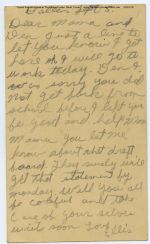 Dear Mama and
Dea Just a line to
let you know I got
here ok I will go to
work today. Dan I
was sorry you did
not get back from
school before I left you
be good and help
Mama you let me
know about that draft
board They surely will
get that statement by
monday Well you all
be careful and take
Care of your selves
write soon love
Ellis